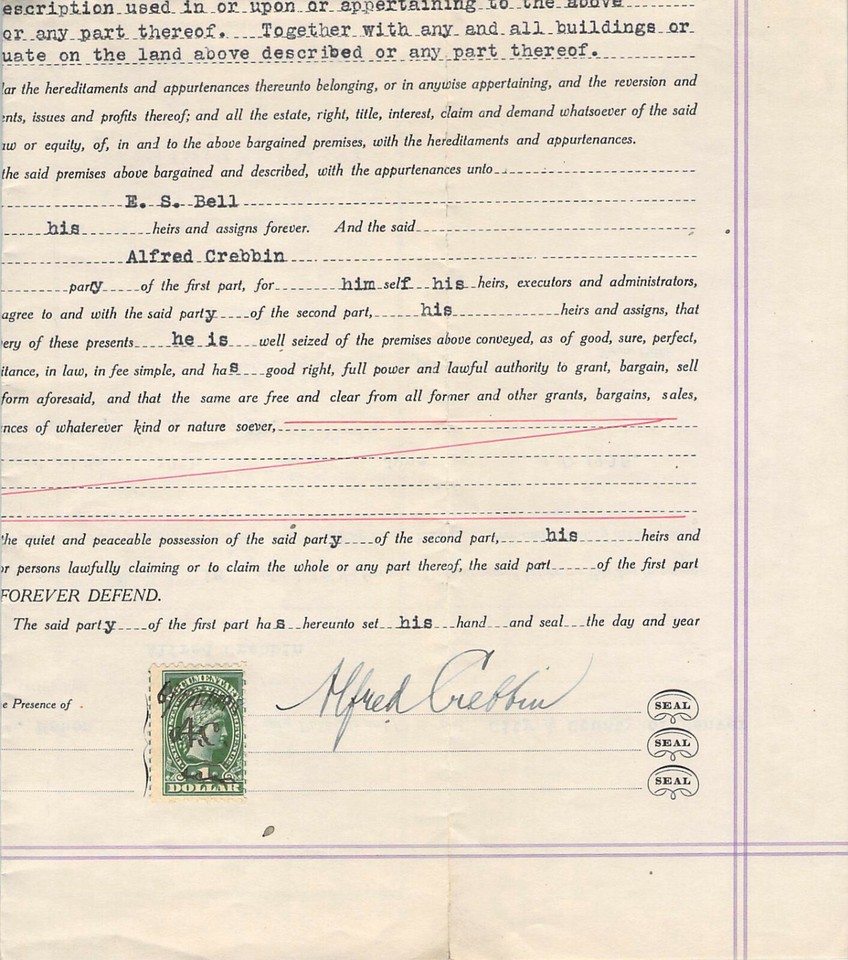 escription used in or upon or appertaining to the above
or any part thereof. Together with any and all buildings or
uate on the land above described or any part thereof.
lar the hereditaments and appurtenances thereunto belonging, or in anywise appertaining, and the reversion and
ents, issues and profits thereof; and all the estate, right, title, interest, claim and demand whatsoever of the said
aw or equity, of, in and to the above bargained premises, with the hereditaments and appurtenances.
the said premises above bargained and described, with the appurtenances unto
E. S. Bell
his heirs and assigns forever. And the said
Alfred Crebbin
party of the first part, for him self his heirs, executors and administrators,
agree to and with the said party of the second part, his heirs and assigns, that
ery of these presents he is well seized of the premises above conveyed, as of good, sure, perfect,
itance, in law, in fee simple, and has good right, full power and lawful authority to grant, bargain, sell
form aforesaid, and that the same are free and clear from all former and other grants, bargains, sales,
nces of whaterever kind or nature soever,
the quiet and peaceable possession of the said party of the second part, his heirs and
or persons lawfully claiming or to claim the whole or any part thereof, the said part of the first part
FOREVER DEFEND.
The said party of the first part has hereunto set his hand and seal the day and year
e Presence of
Alfred Crebbin
SEAL
SEAL
SEAL
DOCUMENTARY
A.C.
1
DOLLAR